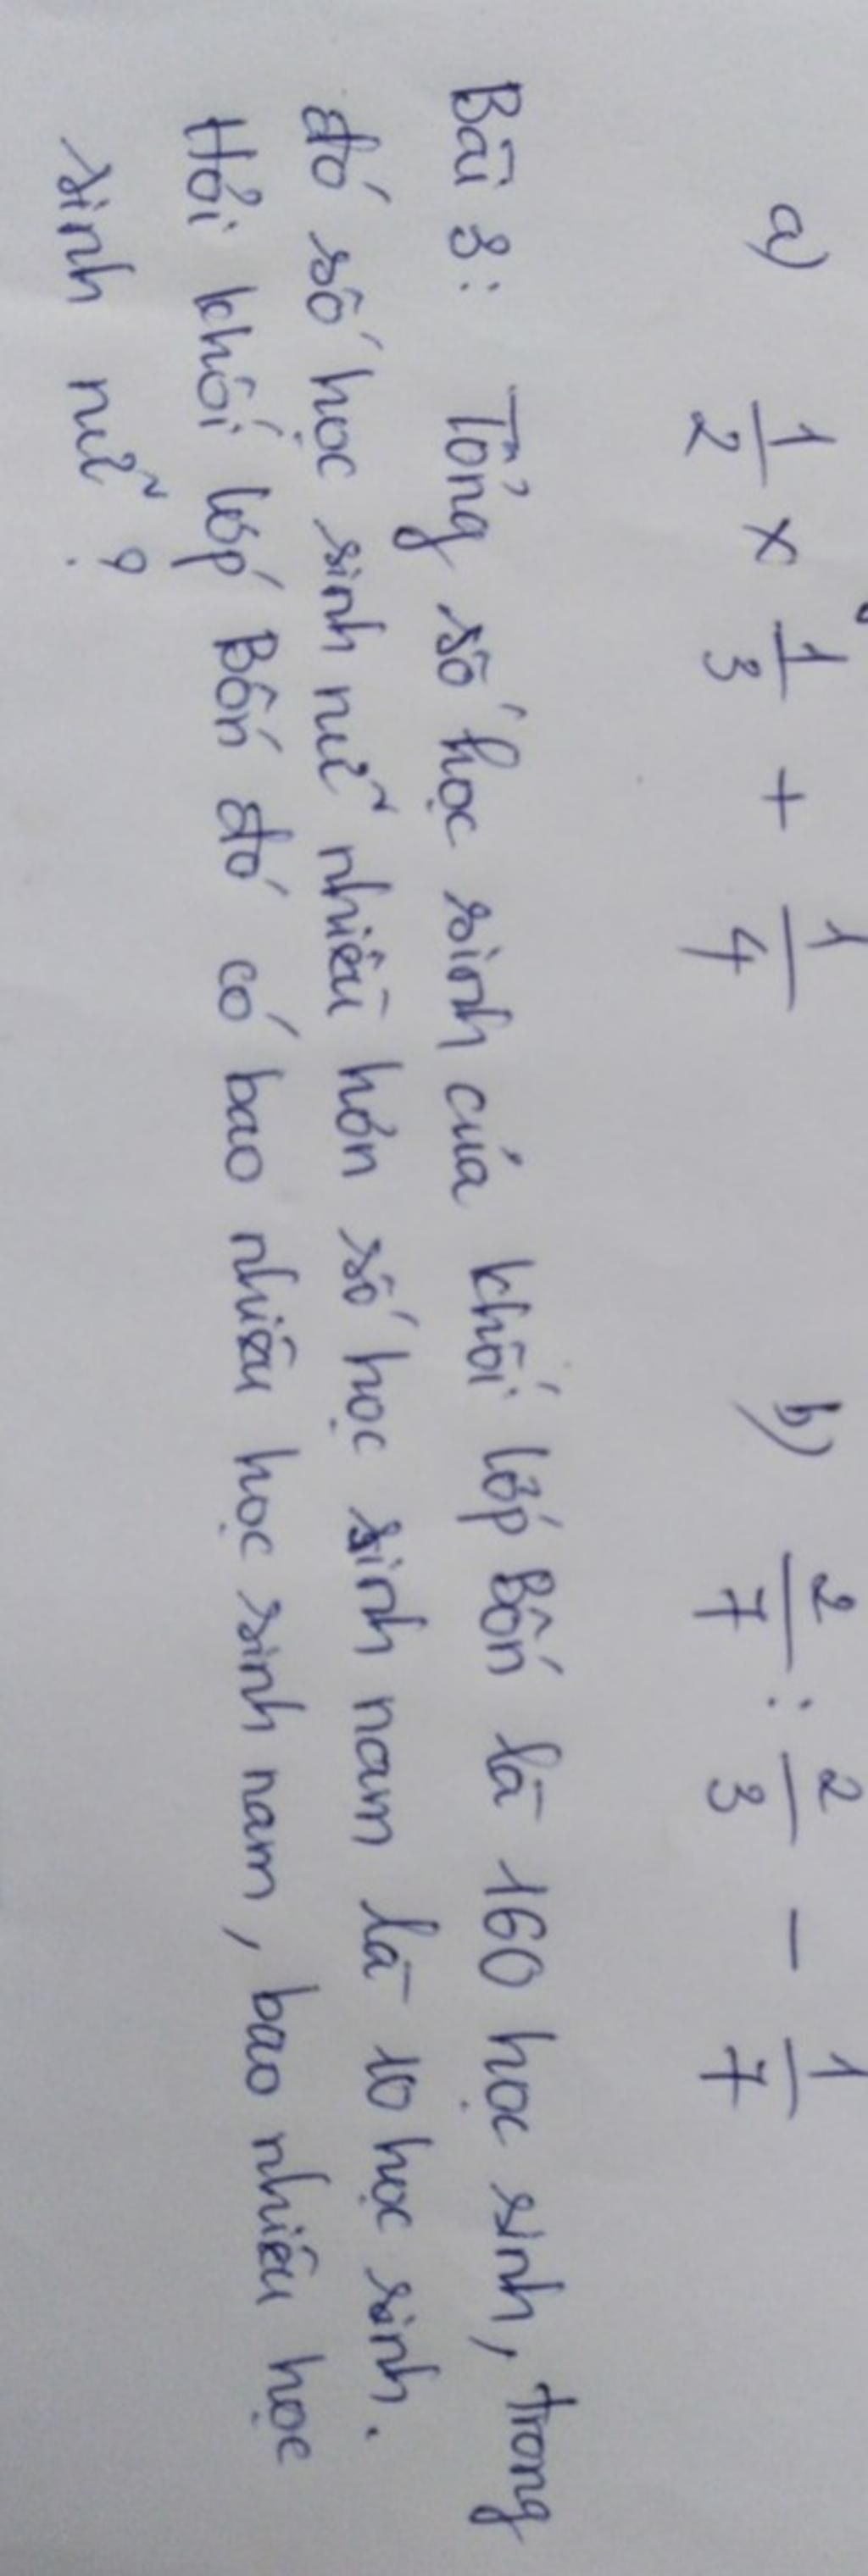 a) 1/2 × 1/3 + 1/4 b) 2/7 : 2/3 - 1/7
Bài 3: Tổng số học sinh của khối lớp Bốn là 160 học sinh, trong
đó số học sinh nữ nhiều hơn số học sinh nam là 10 học sinh.
Hỏi khối lớp Bốn đó có bao nhiêu học sinh nam, bao nhiêu học
sinh nữ?